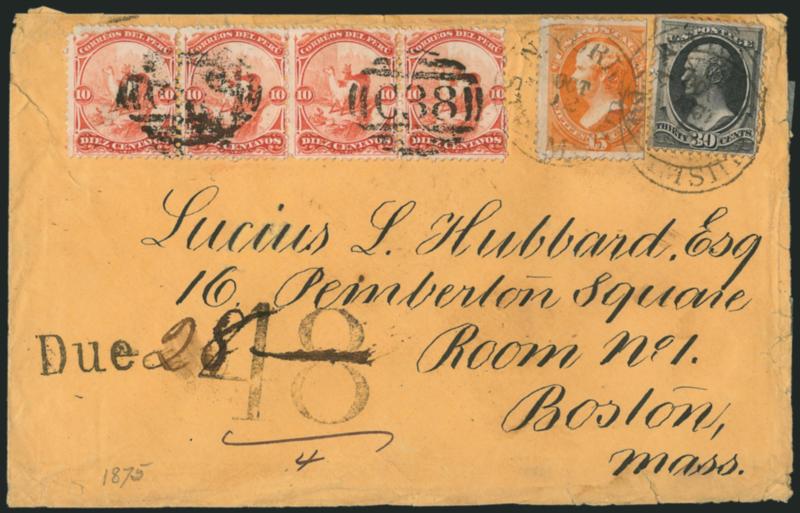 CORREOS DEL PERÚ CORREOS DEL PERÚ CORREOS DEL PERÚ CORREOS DEL PERÚ
10 10 10 10 10
DIEZ CENTAVOS DIEZ CENTAVOS DIEZ CENTAVOS DIEZ CENTAVOS
C38
OCT
15
U.S. POSTAGE
THIRTY 30 CENTS
Lucius L. Hubbard, Esq
16 Pemberton Square
Room No 1.
Boston,
Mass.
Due 28
48
4
1875